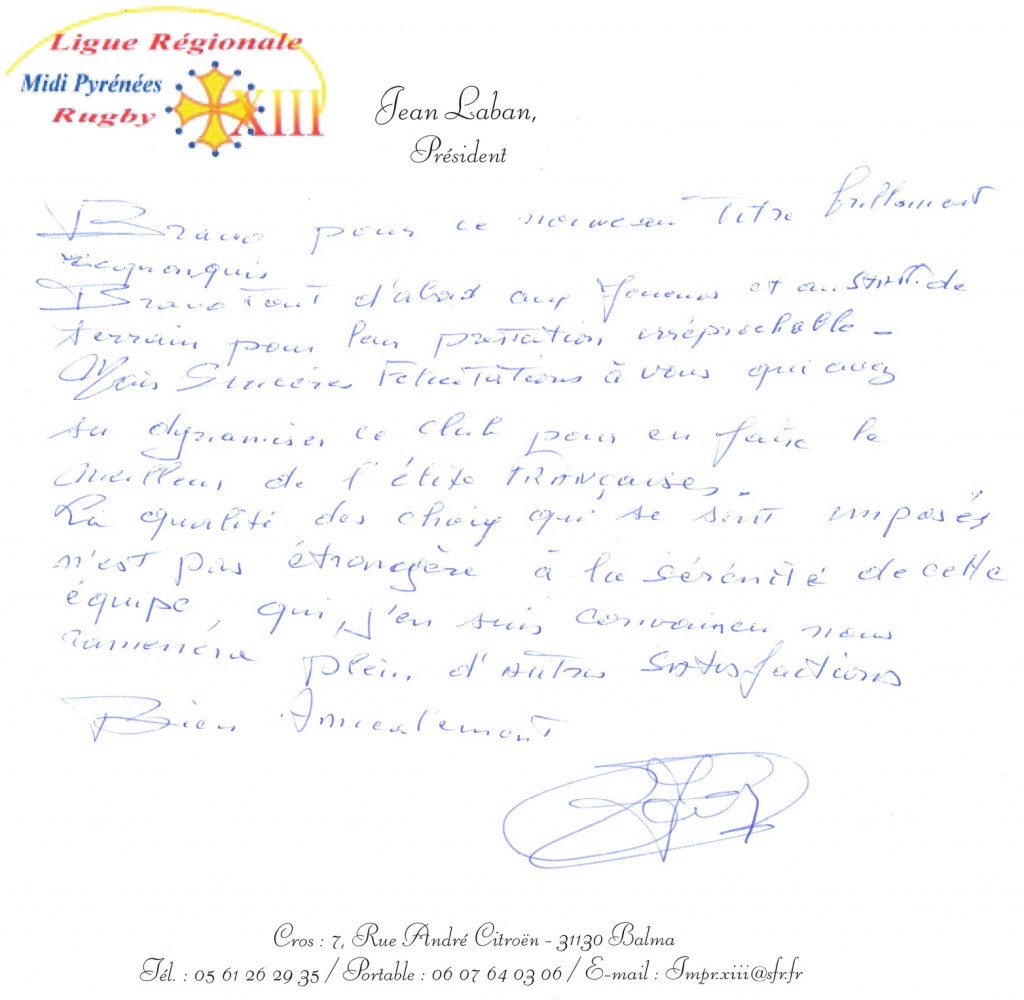 Ligue Régionale
Midi Pyrénées
Rugby XIII
Jean Laban,
Président
Bravo pour ce nouveau Titre brillament
Bravo Tout d'abord aux Joueurs et au STAFF de
terrain pour leur prestation irréprochable -
Mais Sincères Félicitations à vous qui avez
su dynamiser ce club pour en faire le
meilleur de l'élite FRANçaises.
La qualité des choix qui se sont imposés
n'est pas étrangère à la sérénité de cette
équipe, qui, j'en suis convaincu nous
ramènera plein d'autres satisfactions
Bien Amicalement
Cros : 7, Rue André Citroën - 31130 Balma
Tél. : 05 61 26 29 35 / Portable : 06 07 64 03 06 / E-mail : Impr.xiii@sfr.fr